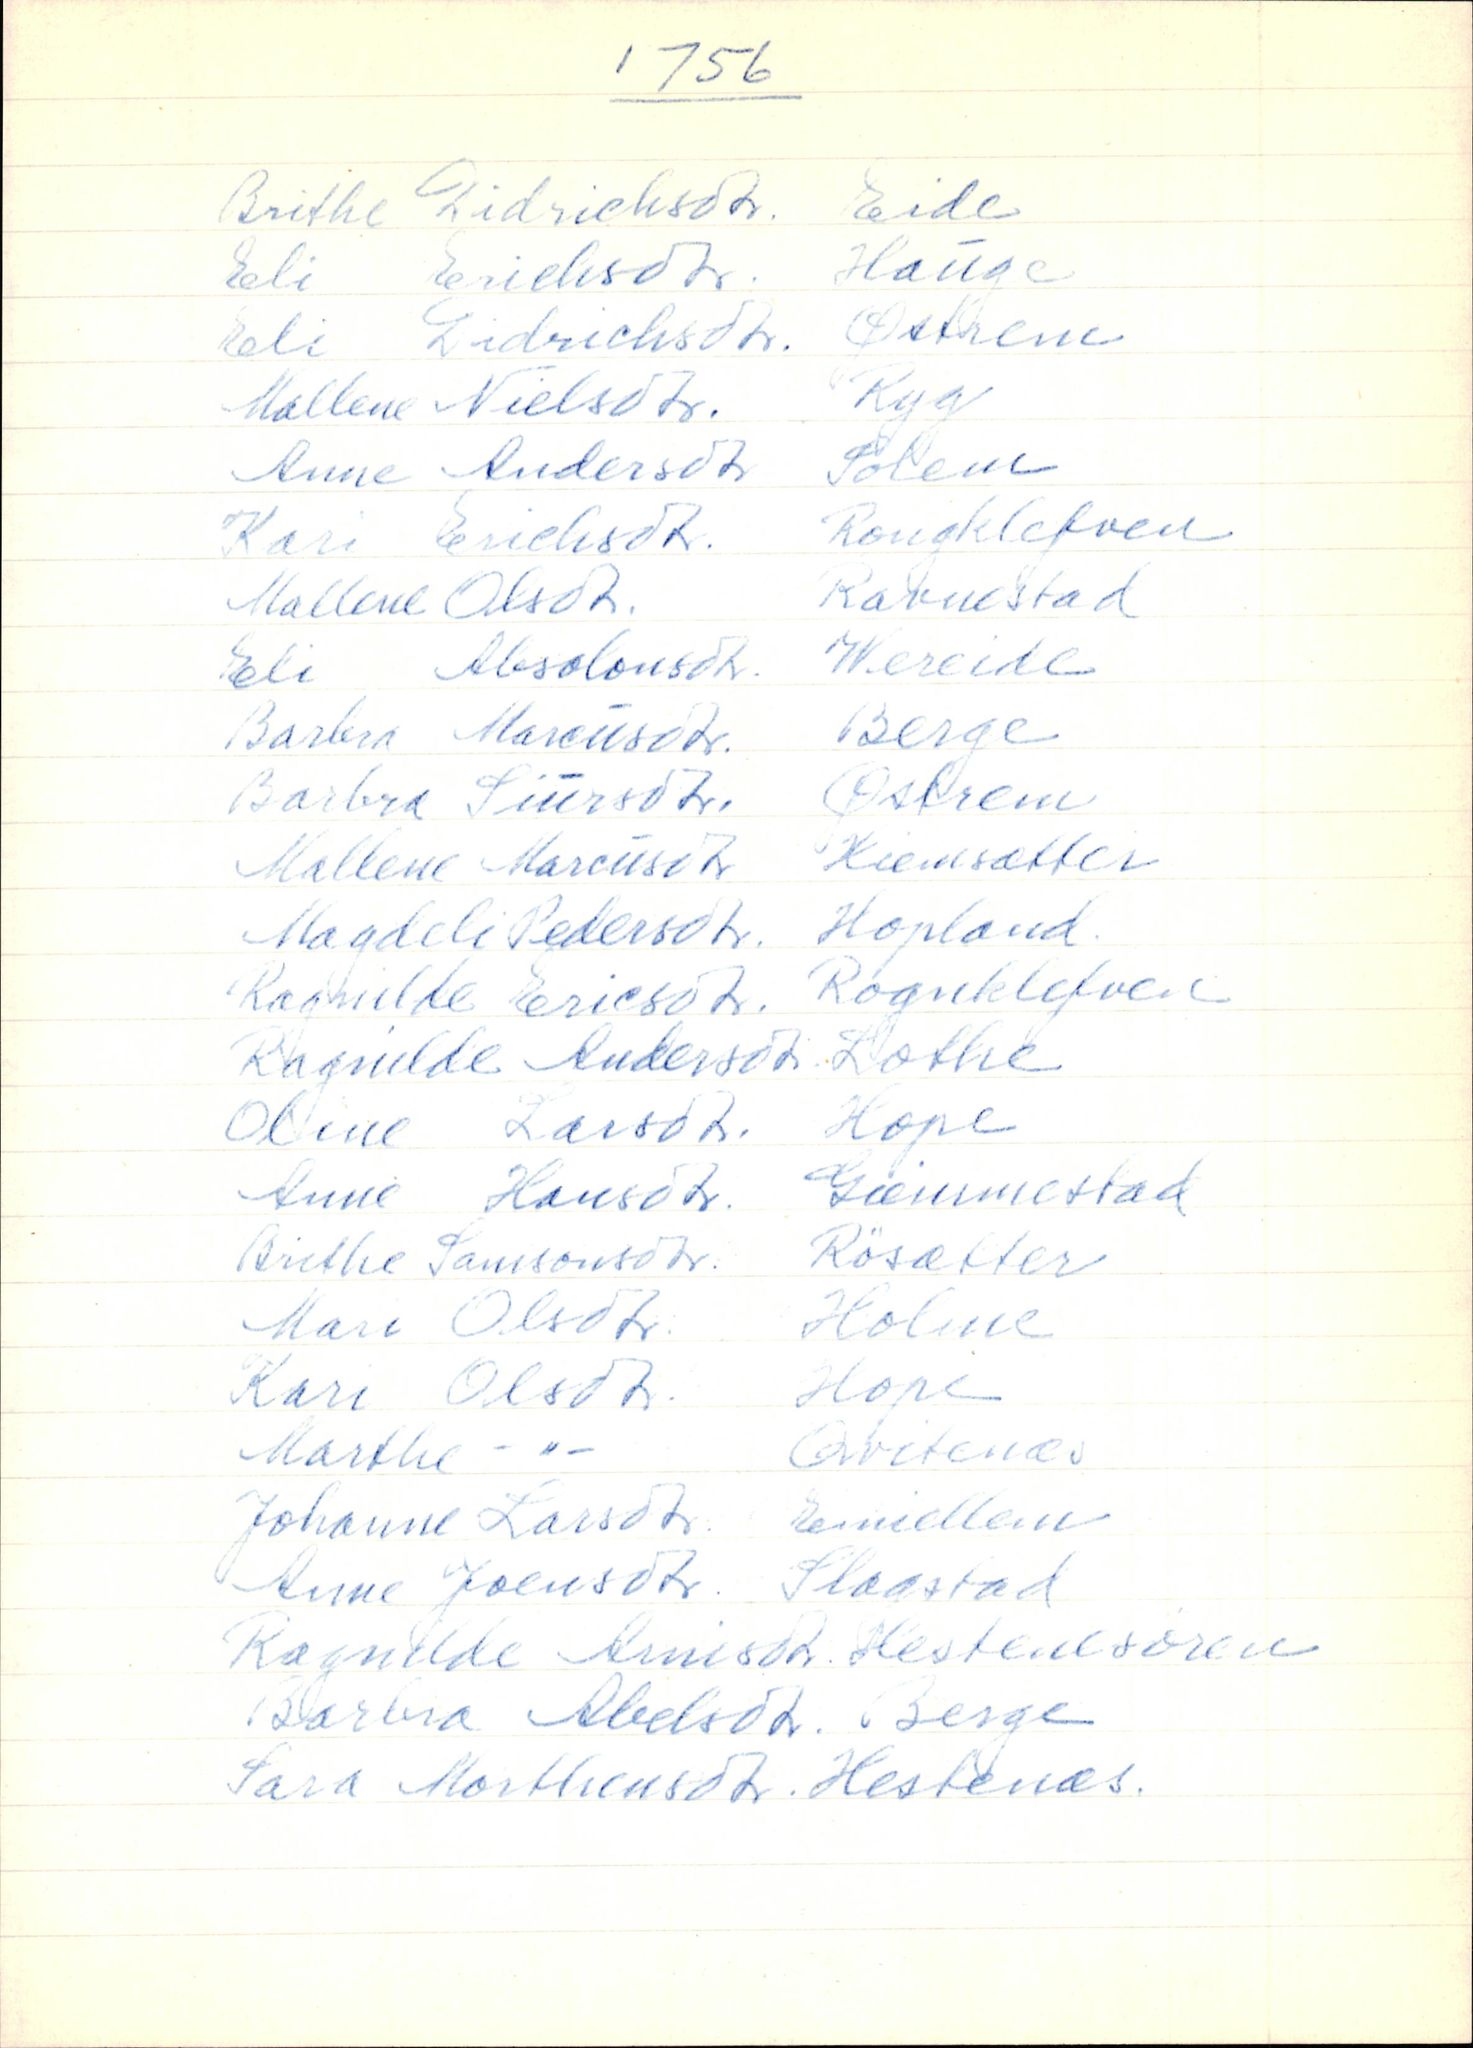 1756
Brithe Didrichsdtr. Eide
Eli Erichsdtr. Haüge
Eli Didrichsdtr. Østrem
Mallene Nielsdtr. Ryg
Anne Andersdtr Solem
Kari Erichsdtr. Rongklefven
Mallene Olsdtr. Ravnestad
Eli Absolonsdtr. Wereide
Barbra Marcüsdtr. Berge
Barbra Siürsdtr. Østrem
Mallene Marcüsdtr Hiemsætter
Magdeli Pedersdtr. Hopland.
Ragnilde Ericsdtr. Rognklefven
Ragnilde Andersdtr. Lothe
Oline Larsdtr. Hope
Anne Hansdtr. Giemmestad
Brithe Samsonsdtr. Rösætter
Mari Olsdtr. Holme
Kari Olsdtr. Hope
Marthe - " - Qvitenæs
Johanne Larsdtr. Emiellem
Anne Joensdtr. Slagstad
Ragnilde Arnisdtr. Hestenesøren
Barbra Abelsdtr. Berge
Sara Morthensdtr. Hestenæs.